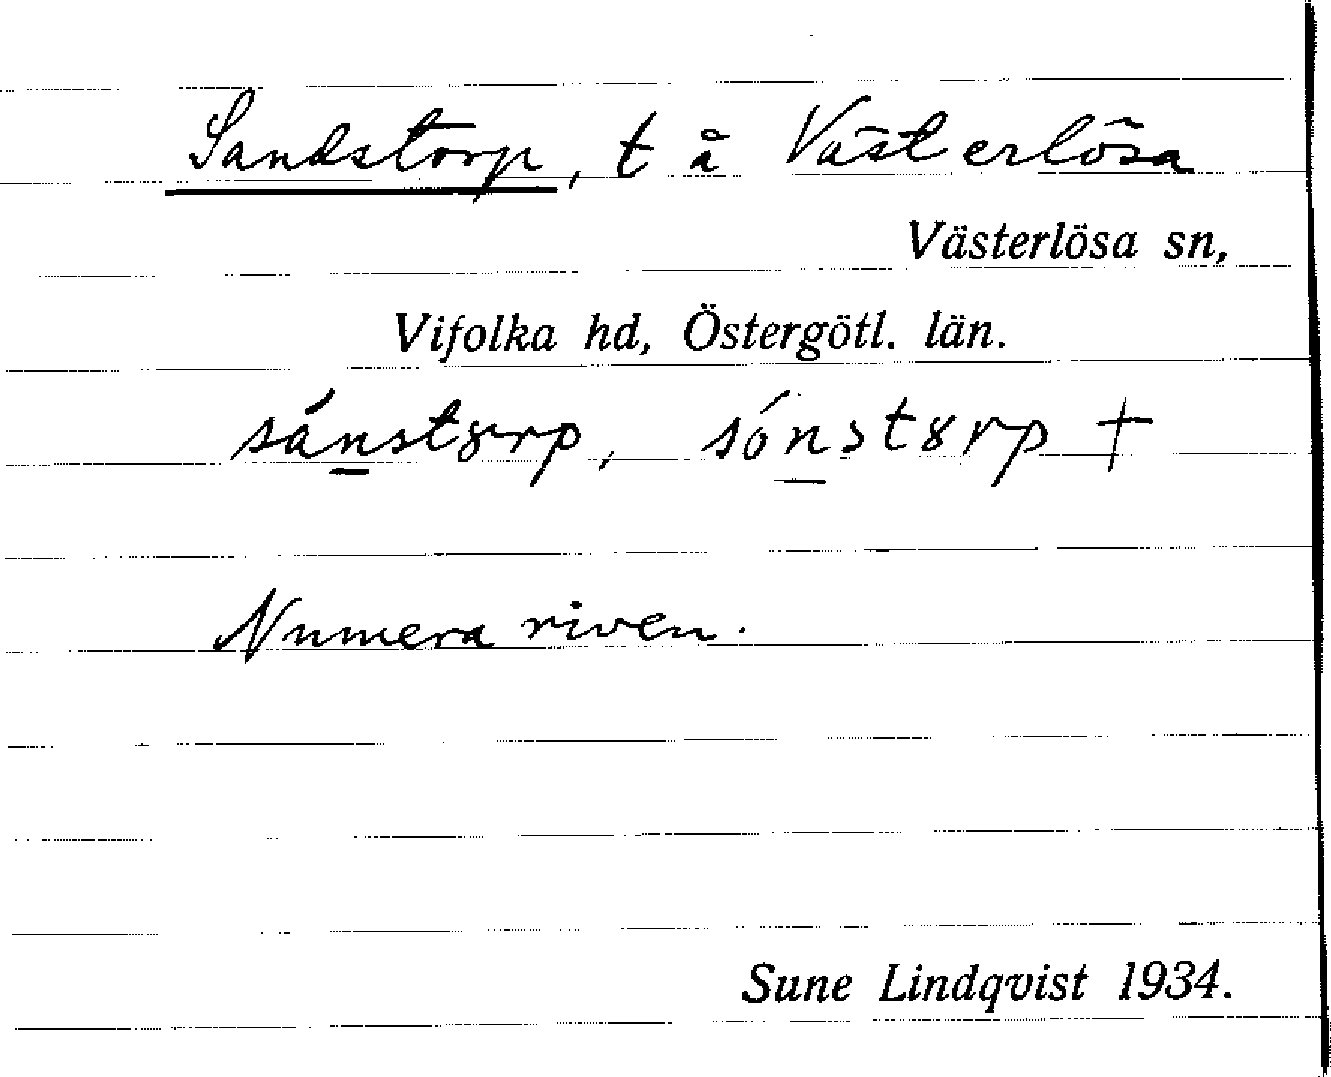 Sandstorp, t å Västerlösa
Västerlösa sn,
Vifolka hd, Östergötl. län.
sánstȣrp, sónstȣrp +
Numera riven.
Sune Lindqvist 1934.